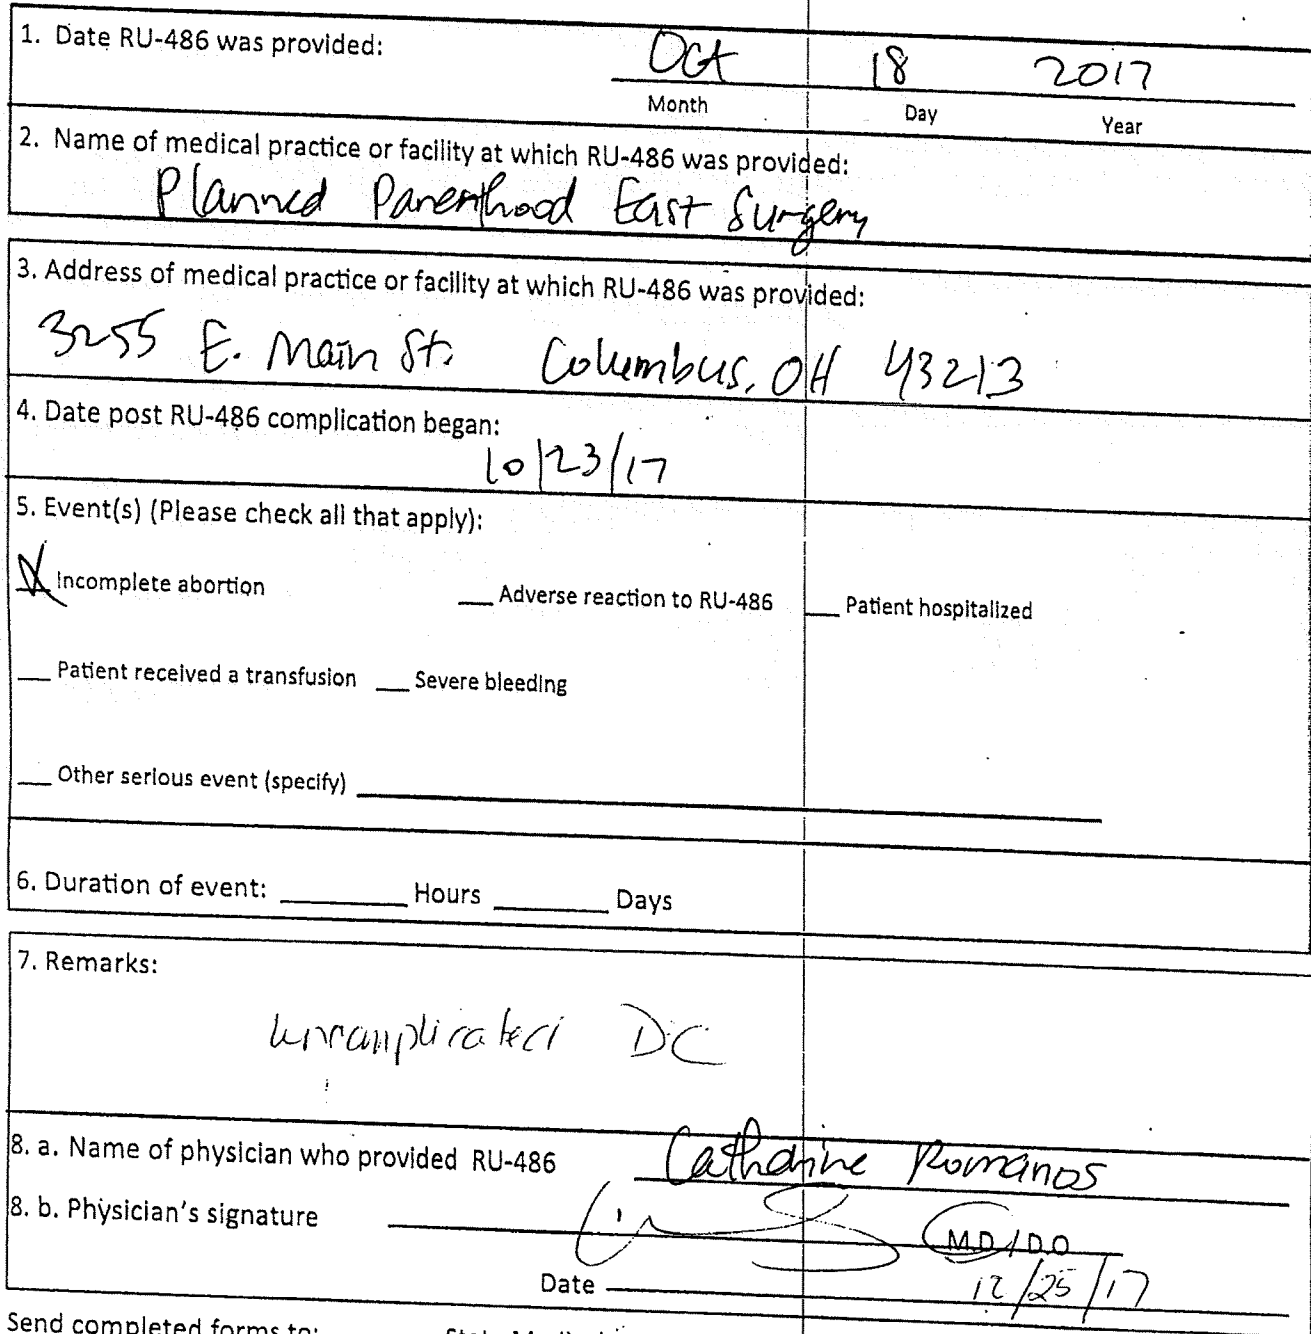 1. Date RU-486 was provided:
Oct 18 2017
Month Day Year
2. Name of medical practice or facility at which RU-486 was provided:
Planned Parenthood East Surgery
3. Address of medical practice or facility at which RU-486 was provided:
3255 E. Main St. Columbus, OH 43213
4. Date post RU-486 complication began:
10/23/17
5. Event(s) (Please check all that apply):
X Incomplete abortion __ Adverse reaction to RU-486 __ Patient hospitalized
__ Patient received a transfusion __ Severe bleeding
__ Other serious event (specify) ____
6. Duration of event: ____ Hours ____ Days
7. Remarks:
uncomplicated DC
8. a. Name of physician who provided RU-486 Catherine Romanos
8. b. Physician's signature M.D/D.O
Date 12/25/17
Send completed forms to: